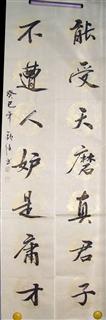 能受天磨真君子
不遭人妒是庸才
癸巳年